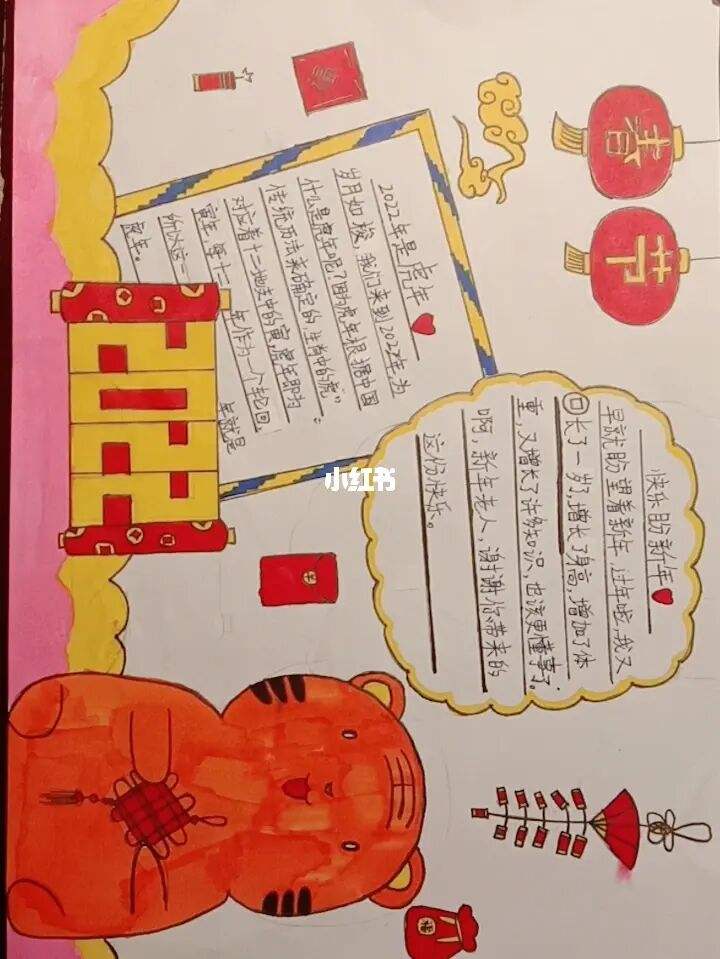 春节
2022年是虎年
岁月如梭,我们来到2022年为
什么是虎年呢?因为虎年根据中国
传统历法来确定的,生肖中的"虎"
对应着十二地支中的寅,虎年即为
寅年,每十二 年作为一个轮回
所以这一 年就是
虎年。
2022
快乐的新年
早就盼望着新年,过年啦,我又
长了一岁,增长了身高,增加了体
重,又增长了许多知识,也该更懂事了。
啊,新年老人,谢谢你带来的
这份快乐。
小红书